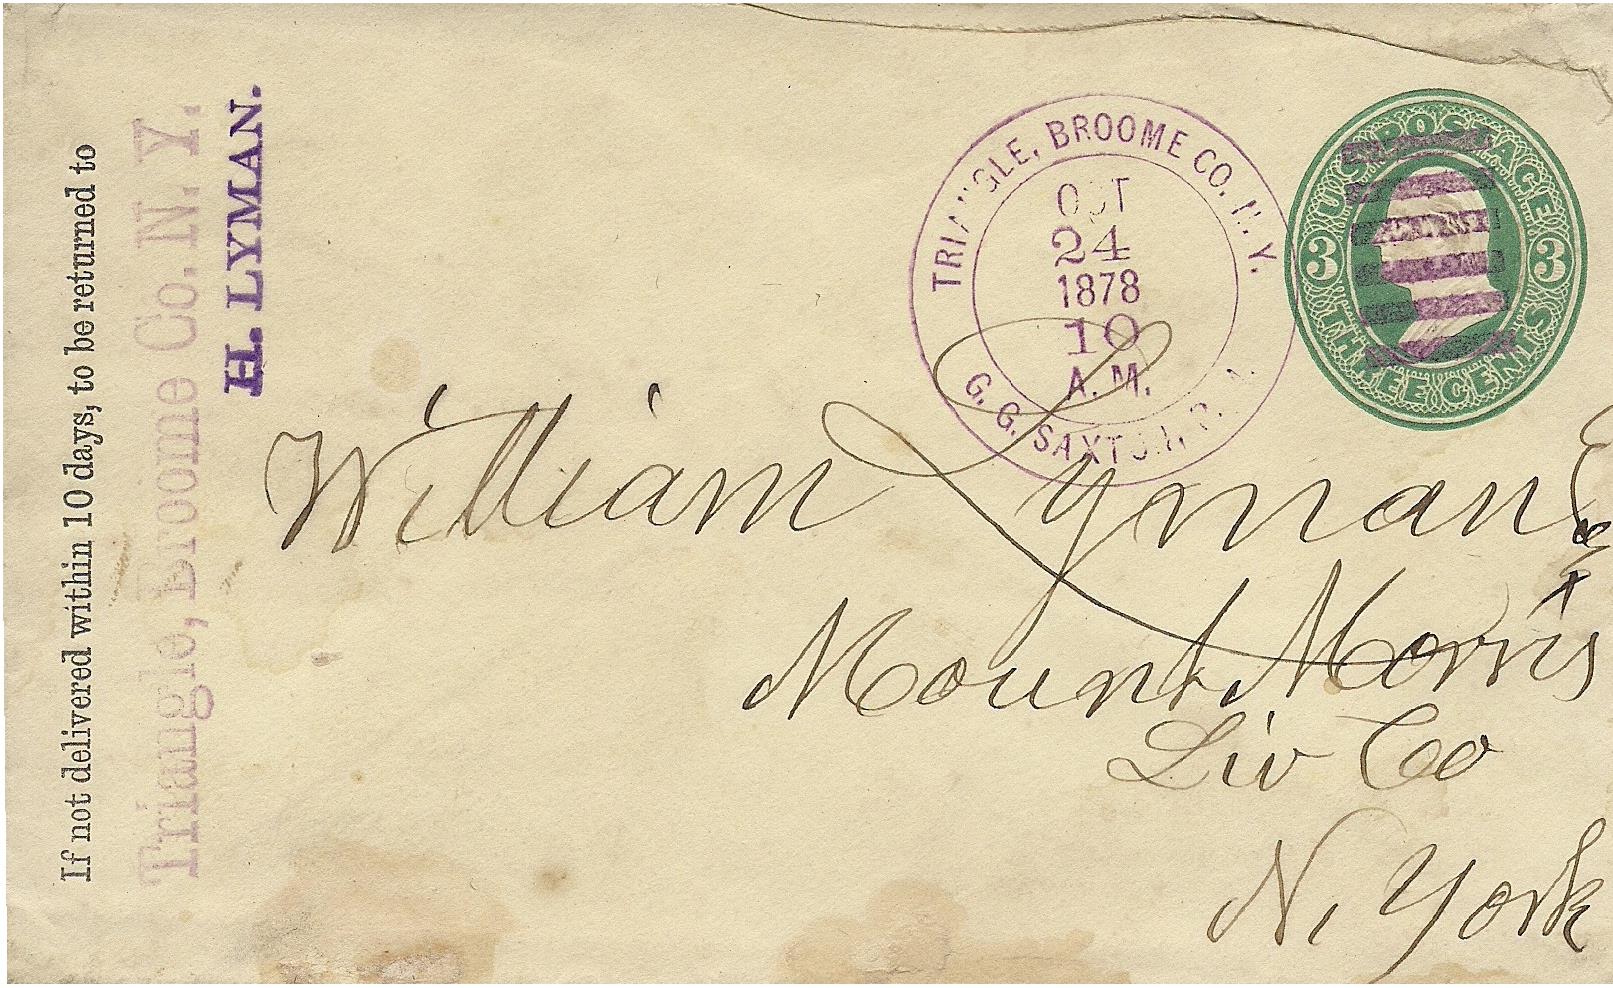 If not delivered within 10 days, to be returned to
Triangle, Broome Co. N. Y.
H. LYMAN.
TRIANGLE, BROOME CO. N. Y.
OCT
24
1878
10
A. M.
G. G. SAXTON, P. M.
U.S. POSTAGE
3 3
THREE CENTS
William Lyman
Mount Morris
Liv Co
N. York